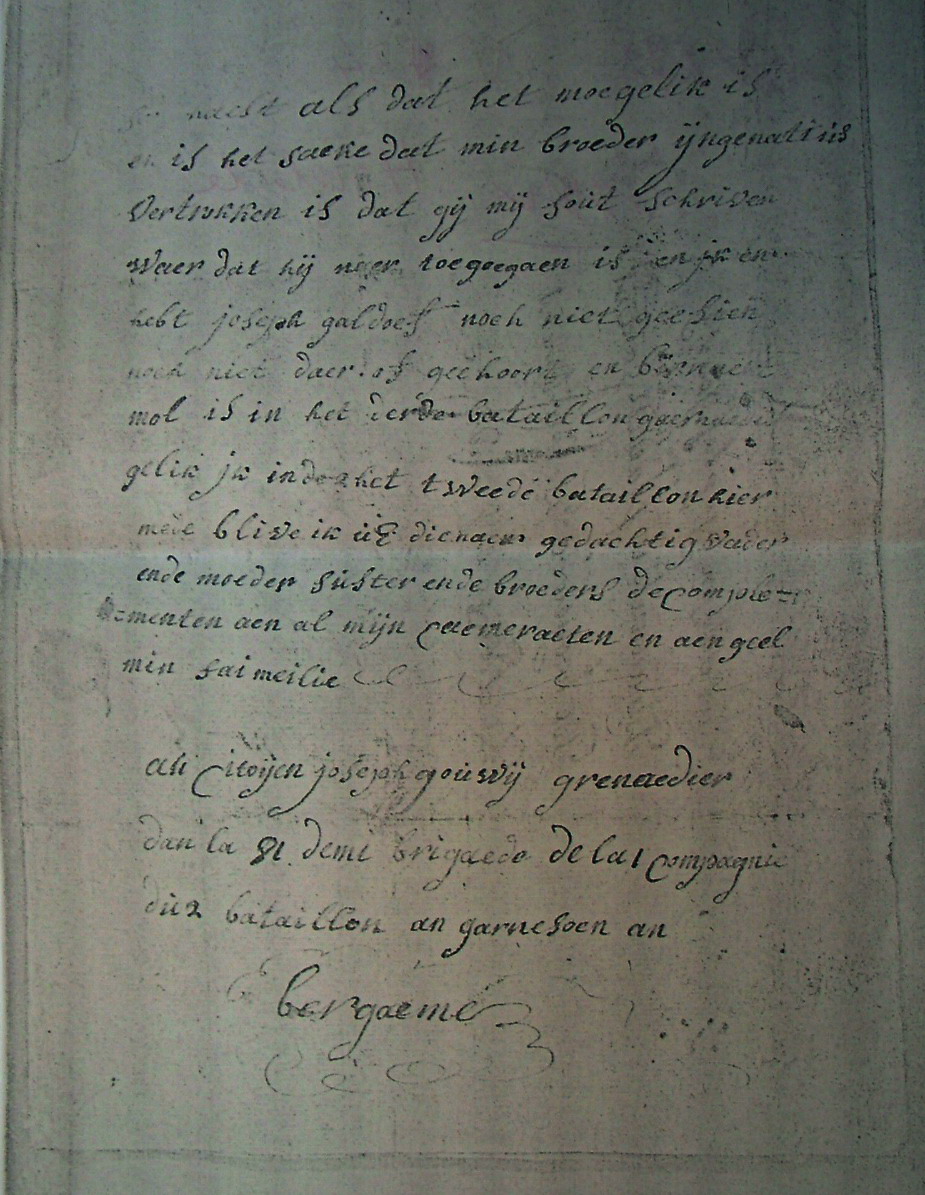 naest als dat het moegelik is
en is het saeke dat min broeder ijngenatius
vertrokken is dat gij mij sout schriven
waer dat hij naer toegegaen is en jk en
hebt joseph galdoes noch niet geesien
noch niet daer of geehoort en
mol is in het derde bataillon
gelik jk in het tweede bataillon hier
mede blive ik uE dienaer gedachtig vader
ende moeder suster ende broeders de comple=
=menten aen al mijn caemeraeten en aen geel
min faimeilie
au citoijen joseph gouwij grenaedier
dan la 91 demi brigaede de la 1 compagnie
du 2 bataillon an garnesoen an
bergaeme